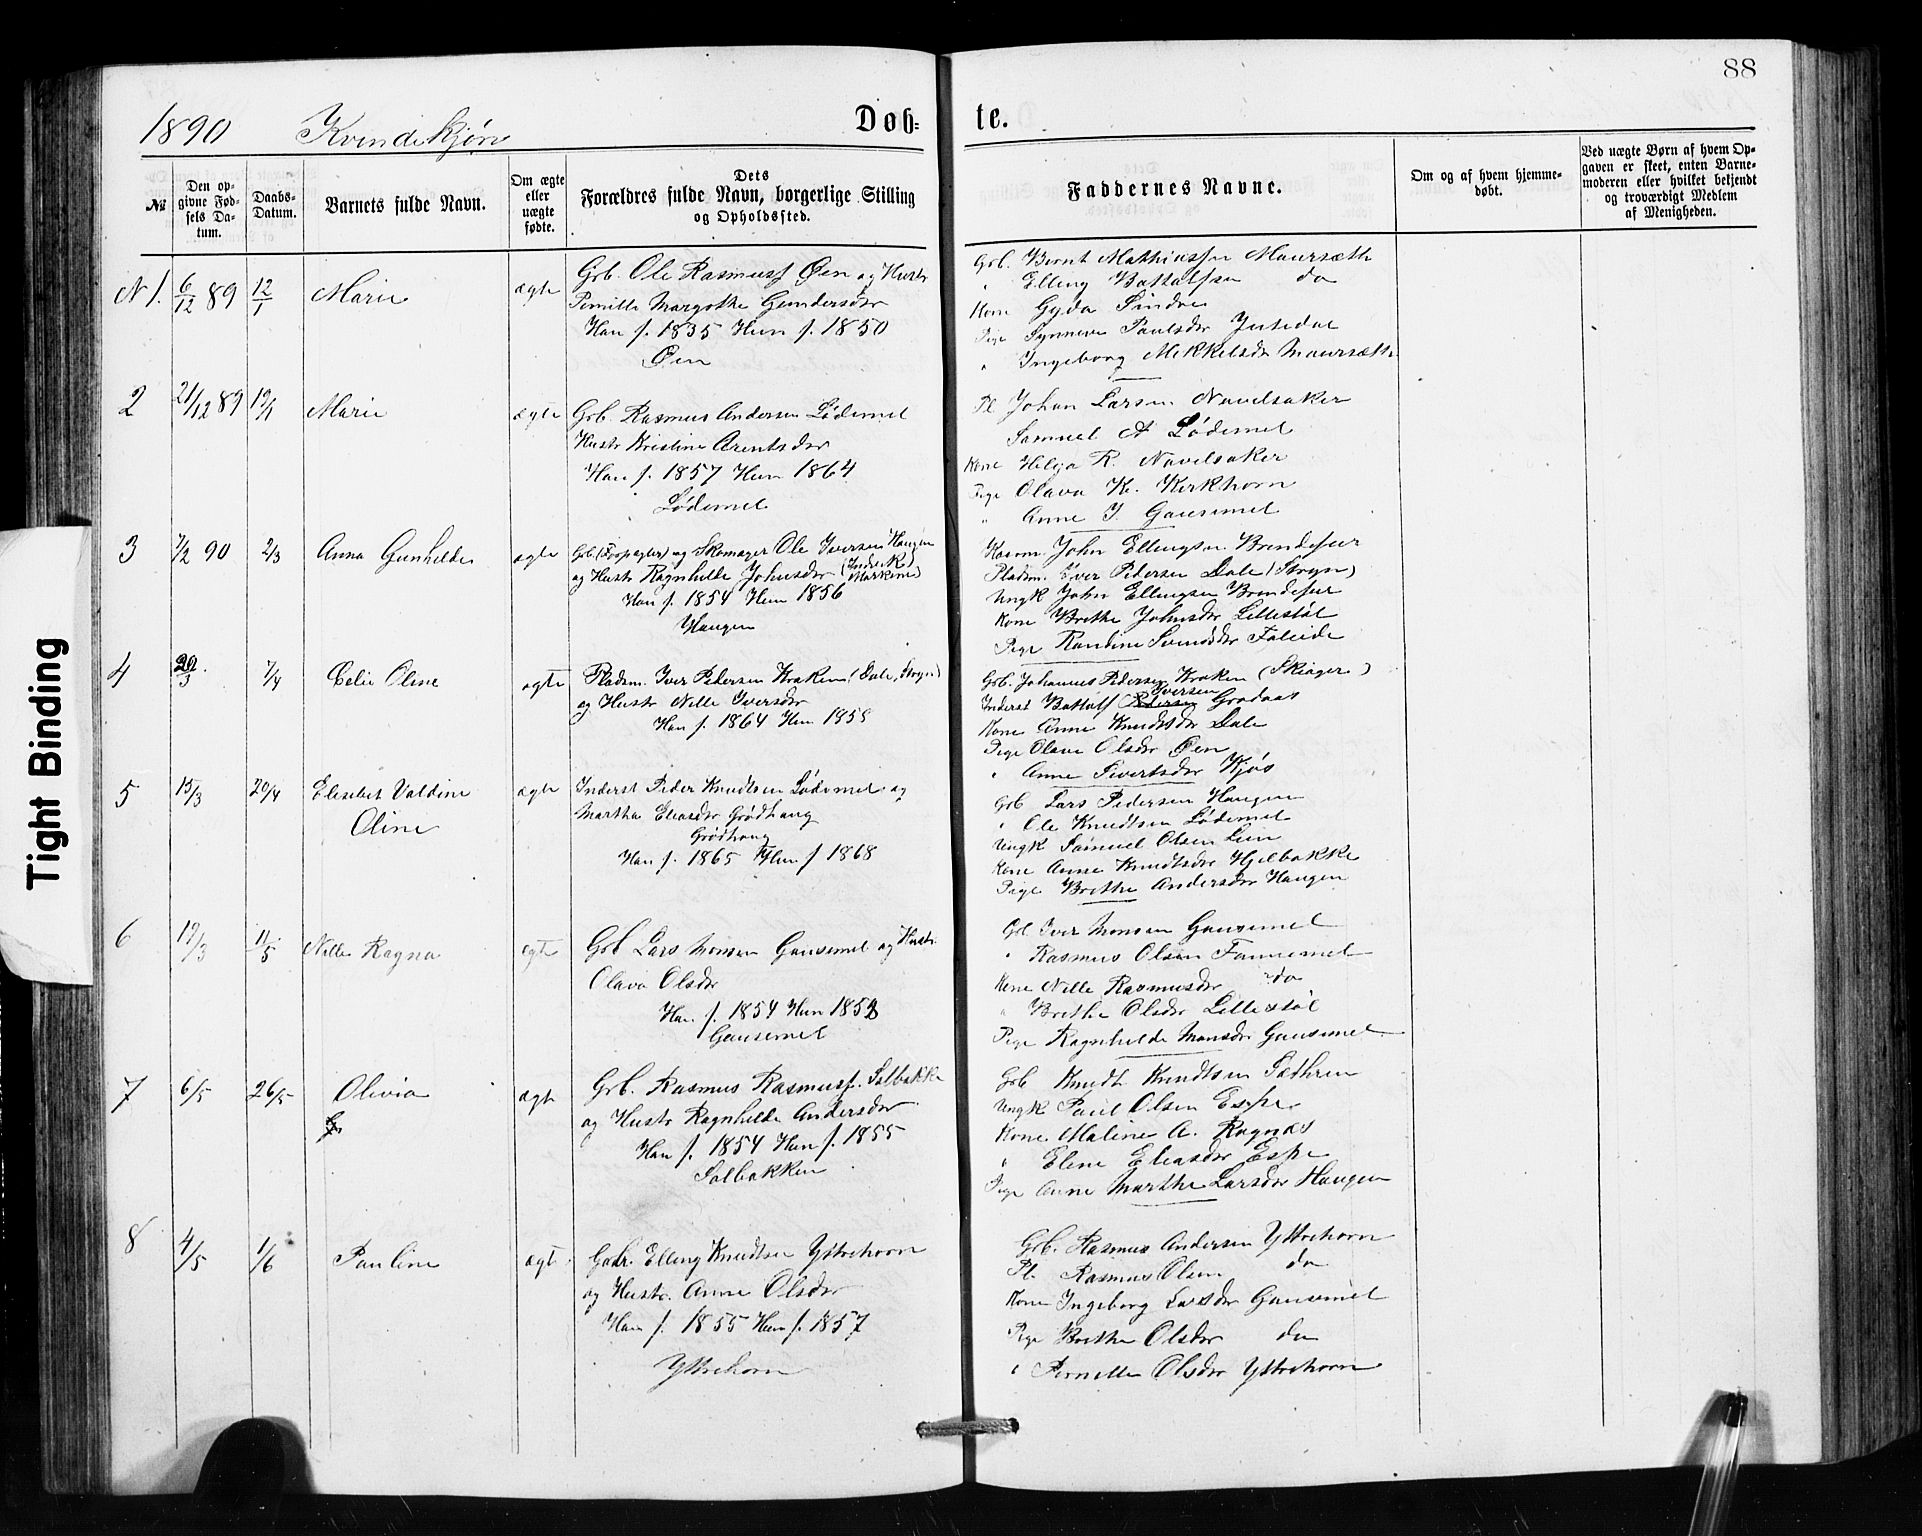 88
1890 Kvindekjøn Døb= te.
№
Den op-
givne Fød-
sels Da-
tum.
Daabs-
Datum.
Barnets fulde Navn.
Om ægte
eller
uægte
fødte.
Dets
Forældres fulde Navn, borgerlige Stilling
og Opholdssted.
Faddernes Navne.
Om og af hvem hjemme-
døbt.
Ved uægte Børn af hvem Op-
gaven er skeet, enten Barne-
moderen eller hvilket bekjendt
og troværdigt Medlem
af Menigheden.
N 1. 6/12 89 12/1 Marie ægte Grb. Ole Rasmuss Øen og Hustr
Pernille Margothe Gundersdtr
Han f. 1835 Hun f. 1850
Øen
Grb. Bernt Mathiassen Maursæth
" Elling Battalfsen do
Kone Gyda Sindre
Pige Synneve Paulsdtr Justedal
" Ingeborg Mikkelsdtr Maursæth
2 21/12 89 19/1 Marie ægte Grb. Rasmus Andersen Lødemel
Hustr Kristine Arentsdtr
Han f. 1857 Hun 1864
Lødemel
Pl Johan Larsen Navelsaker
Samuel A Lødemel
Kone Helga R. Navelsaker
Pige Olava K. Kirkhorn
" Anne J. Gausemel
3 7/2 90 2/3 Anna Gunhilde ægte Grb. (Forpagter) og Skomager Ole Iversen Haugen
og Hustr Ragnhilde Johnsdtr (Inderst k Markene)
Han f. 1854 Hun 1856
Haugen
John Ellingsen Brendefur
Pladsm. Iver Pedersen Dale (Stryn)
Ungk John Ellingsen Brendefur
Kone Brethe Johnsdtr Lillestøl
Pige Randine Svendsdtr Faleide
4 20/3 7/4 Celie Oline ægte Pladsm. Iver Pedersen Kraken (Dale, Stryn)
og Hustr Nille Iversdtr
Han f. 1864 Hun 1858
Grb. Johannes Pedersen Kraken (Skiager)
Inderst Battolf Pedersen Iversen Grodaas
Kone Anne Knudtsdtr Dale
Pige Olave Olsdtr Øen
" Anne Sivertsdtr Kjøs
5 15/3 20/4 Elisebet Valdine
Oline
ægte Inderst Peder Knudtsen Lødemel og
Martha Eliasdtr Grødhaug
Grødhaug
Han f. 1865 Hun f 1868
Grb Lars Pedersen Haugen
" Ole Knudtsen Lødemel
Ungk Samuel Olsen Lien
Kone Anne Knudtsdtr Hjelbakke
Pige Brethe Andersdtr Haugen
6 19/3 11/5 Nille Ragna ægte Grb Lars Monsen Gausemel og Hustr.
Olava Olsdtr
Han f. 1854 Hun 1852
Gausemel
Grb Iver Monsen Gausemel
" Rasmus Olsen Fannemel
Kone Nille Rasmusdtr do
" Brethe Olsdtr Lillestøl
Pige Ragnhilde Monsdtr Gausemel
7 6/5 26/5 Olivia ægte Grb. Rasmus Rasmuss. Solbakke
og Hustr Ragnhilde Andersdtr
Han f. 1854 Hun f. 1855
Solbakken
Grb Knudt Knudtsen Sæthren
Ungk Paul Olsen Espe
Kone Maline A. Ragnæs
" Eline Eliasdtr Espe
Pige Anne Marthe Larsdtr Haugen
8 4/5 1/6 Pauline ægte Gbr. Elling Knudtsen Yttrehorn
og Hustr. Anne Olsdtr
Han f. 1855 Hun f. 1857
Yttrehorn
Grb. Rasmus Andersen Yttrehorn
Pl. Rasmus Olsen do
Kone Ingeborg Larsdtr Gausemel
Pige Brethe Olsdtr do
" Pernille Olsdtr Yttrehorn
Tight Binding